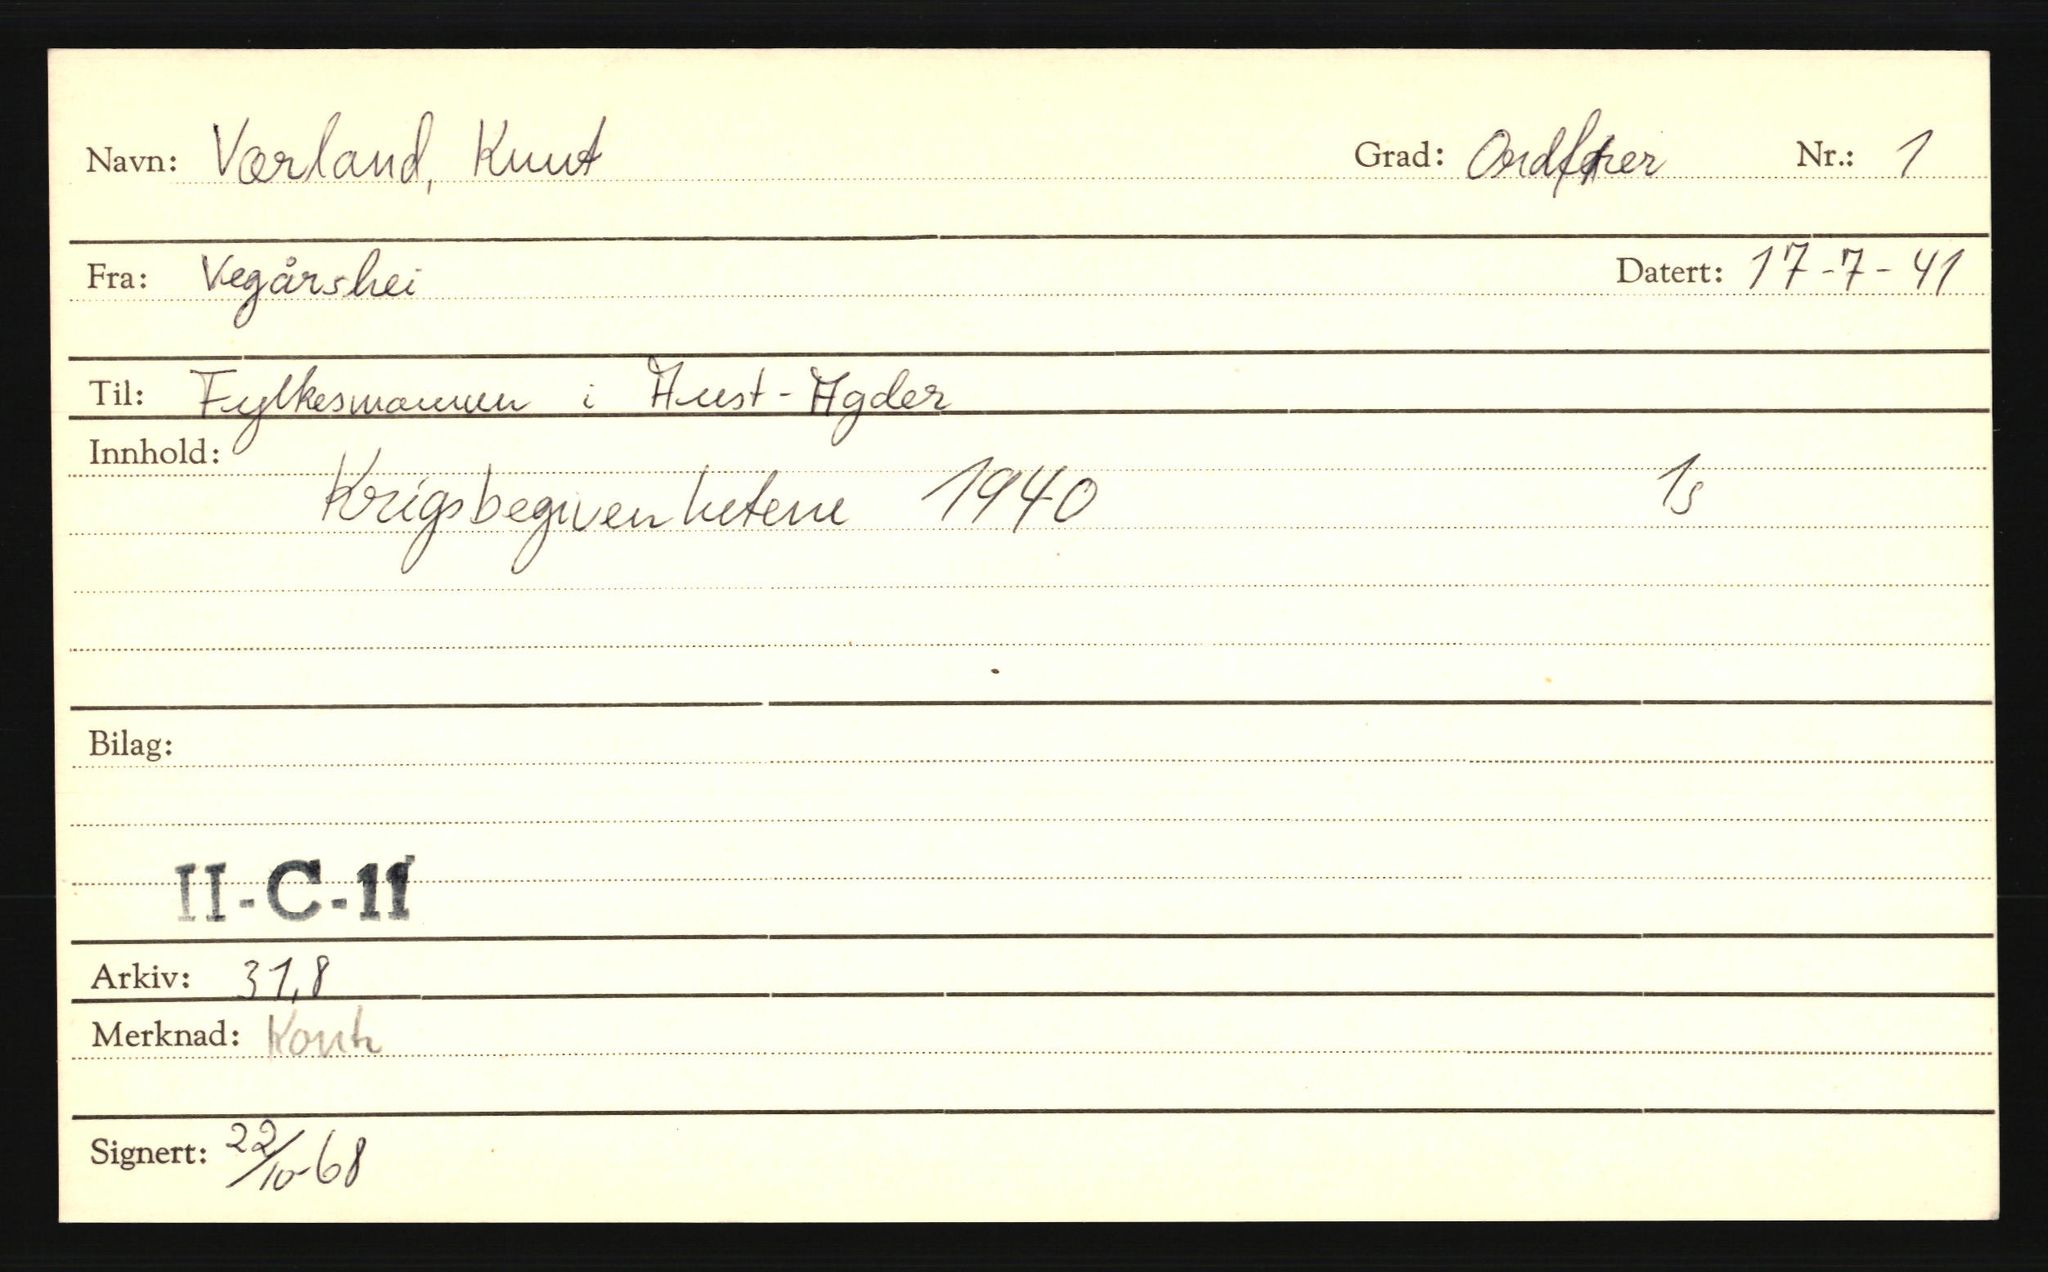 Navn: Værland, Knut Grad: Ordfører Nr.: 1
Fra: Vegårshei Datert: 17-7-41
Til: Fylkesmannen i Aust-Agder
Innhold:
Krigsbegivenhetene 1940 1s
Bilag:
II-C-11
Arkiv: 31,8
Merknad: Kontr
Signert: 22/10-68